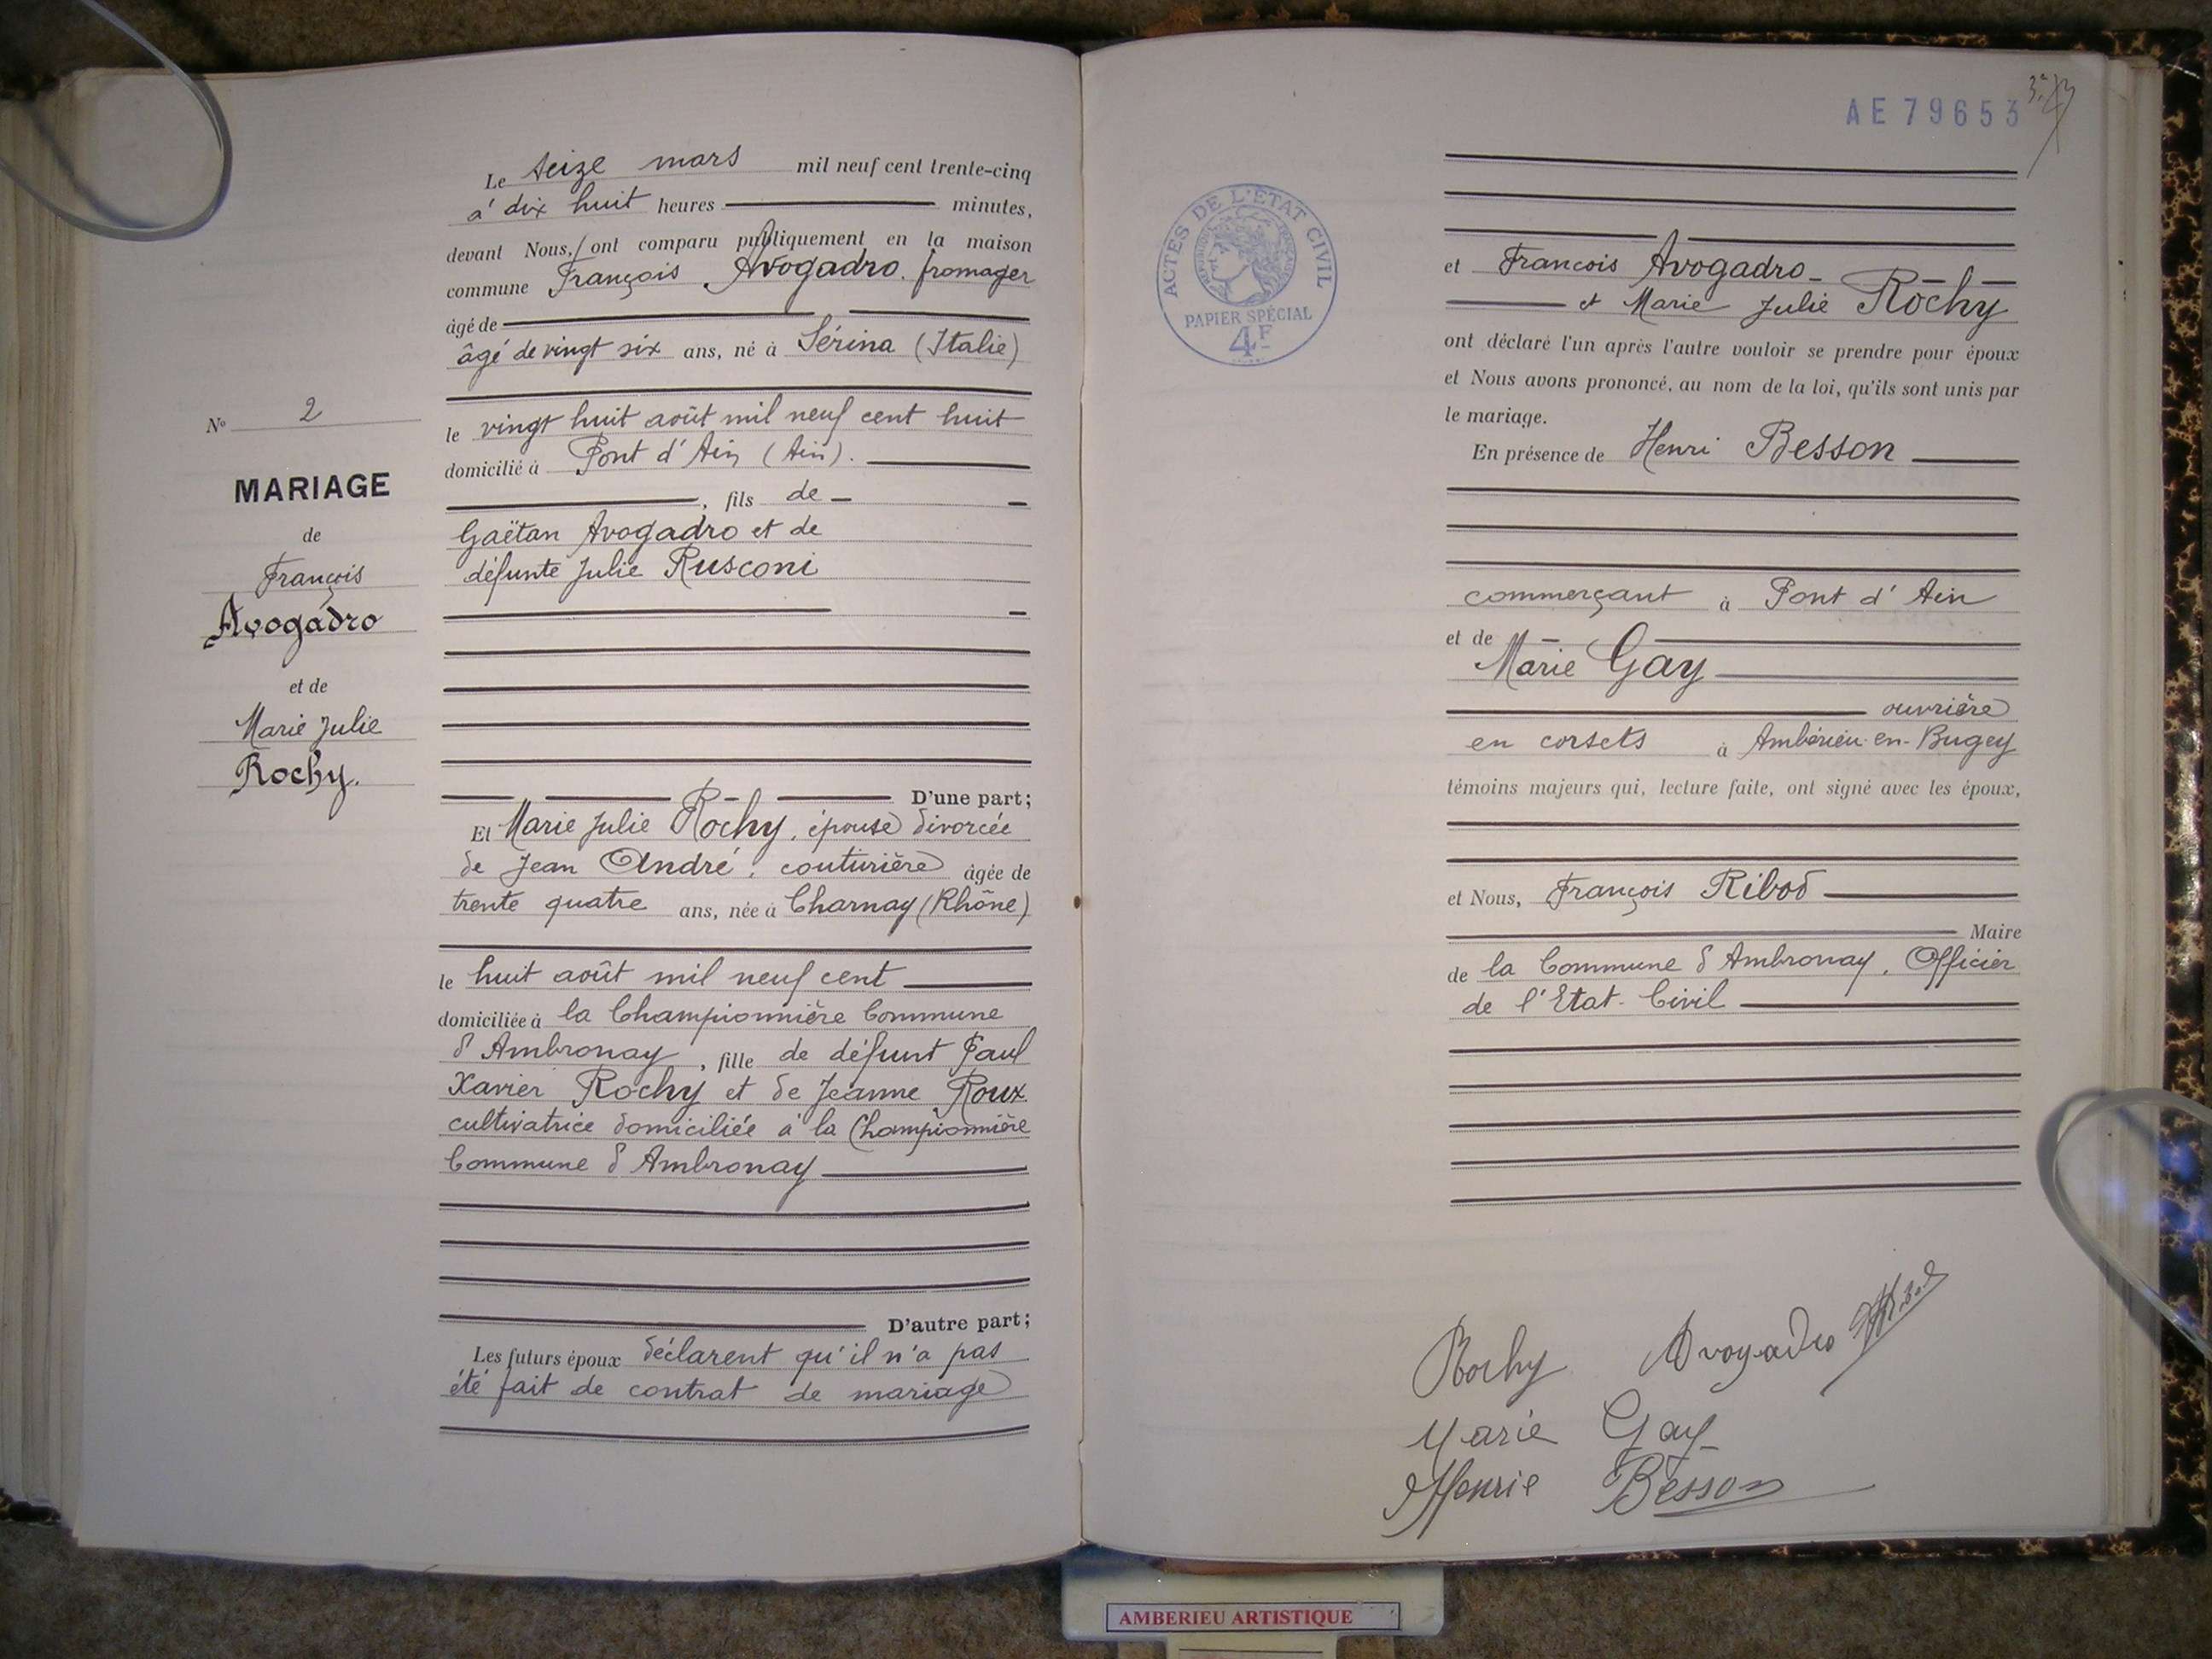 Le seize mars mil neuf cent trente-cinq
à dix huit heures minutes,
devant Nous, ont comparu publiquement en la maison
commune François Avogadro. fromager
âgé de
âgé de vingt six ans, né à Sérina (Italie)
le vingt huit août mil neuf cent huit
domicilié à Pont d'Ain (Ain).
, fils de
Gaëtan Avogadro et de
défunte Julie Rusconi
D'une part;
Et Marie Julie Rochy, épouse divorcée
de Jean André, couturière âgée de
trente quatre ans, née à Charnay (Rhône)
le huit août mil neuf cent
domiciliée à la Championnière Commune
d'Ambronay, fille de défunt Paul
Xavier Rochy et de Jeanne Roux
cultivatrice domiciliée à la Championnière
Commune d'Ambronay
D'autre part;
Les futurs époux déclarent qu'il n'a pas
été fait de contrat de mariage
N° 2
MARIAGE
de
François
Avogadro
et de
Marie Julie
Rochy.
AE 79653
ACTES DE L'ETAT CIVIL
REPUBLIQUE
PAPIER SPÉCIAL
4F
et François Avogadro
et Marie Julie Rochy
ont déclaré l'un après l'autre vouloir se prendre pour époux
et Nous avons prononcé, au nom de la loi, qu'ils sont unis par
le mariage.
En présence de Henri Besson
commerçant à Pont d'Ain
et de
Marie Gay
ouvrière
en corsets à Ambérieu-en-Bugey
témoins majeurs qui, lecture faite, ont signé avec les époux,
et Nous, François Ribod
Maire
de la Commune d'Ambronay, Officier
de l'Etat-Civil
Rochy Avogadro
Marie Gay
Henrie Besson
AMBERIEU ARTISTIQUE